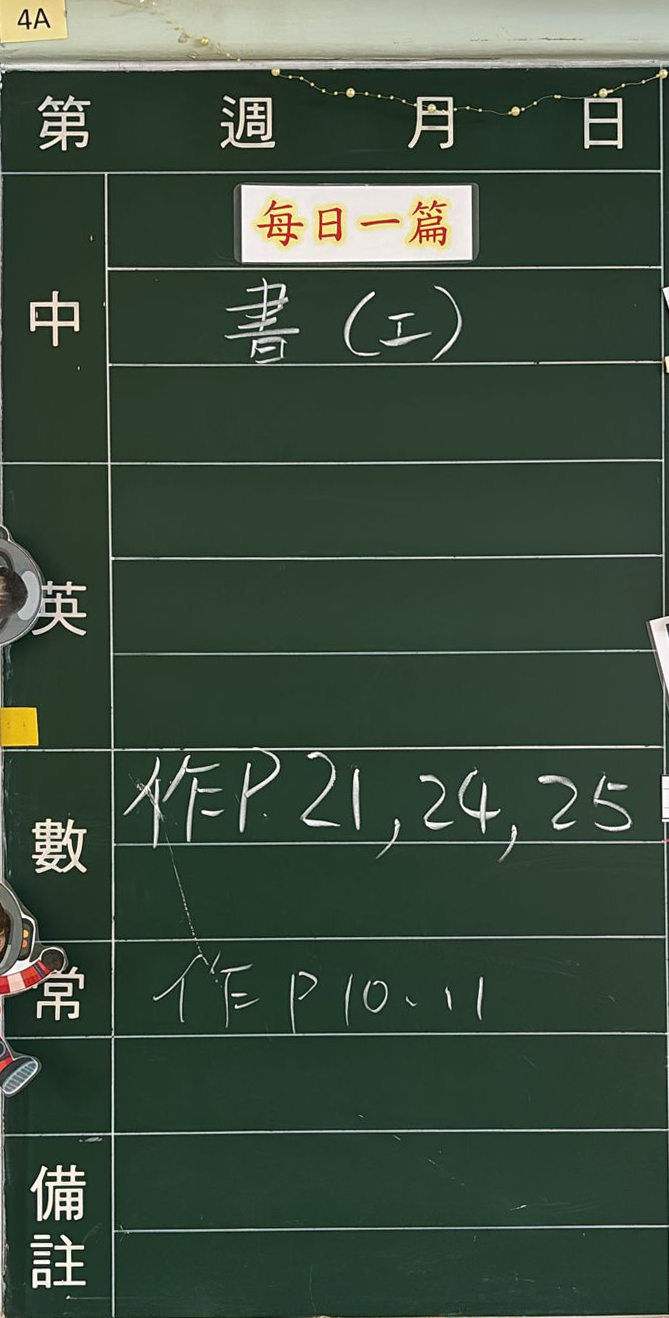 4A
第 週 月 日
每日一篇
中
書(工)
英
數 作P. 21, 24, 25
常 作P10、11
備註